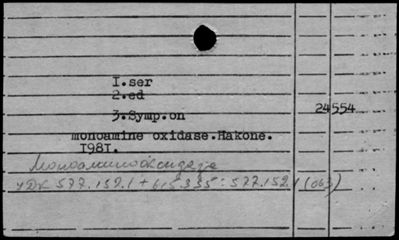 I.ser
2.ed
3.Symp.on
24554
monoamine oxidase.Hakone.
I98I.
Моноаминоксидаза
УДК 577.152.1 + 615.355:577.152.1 (063)